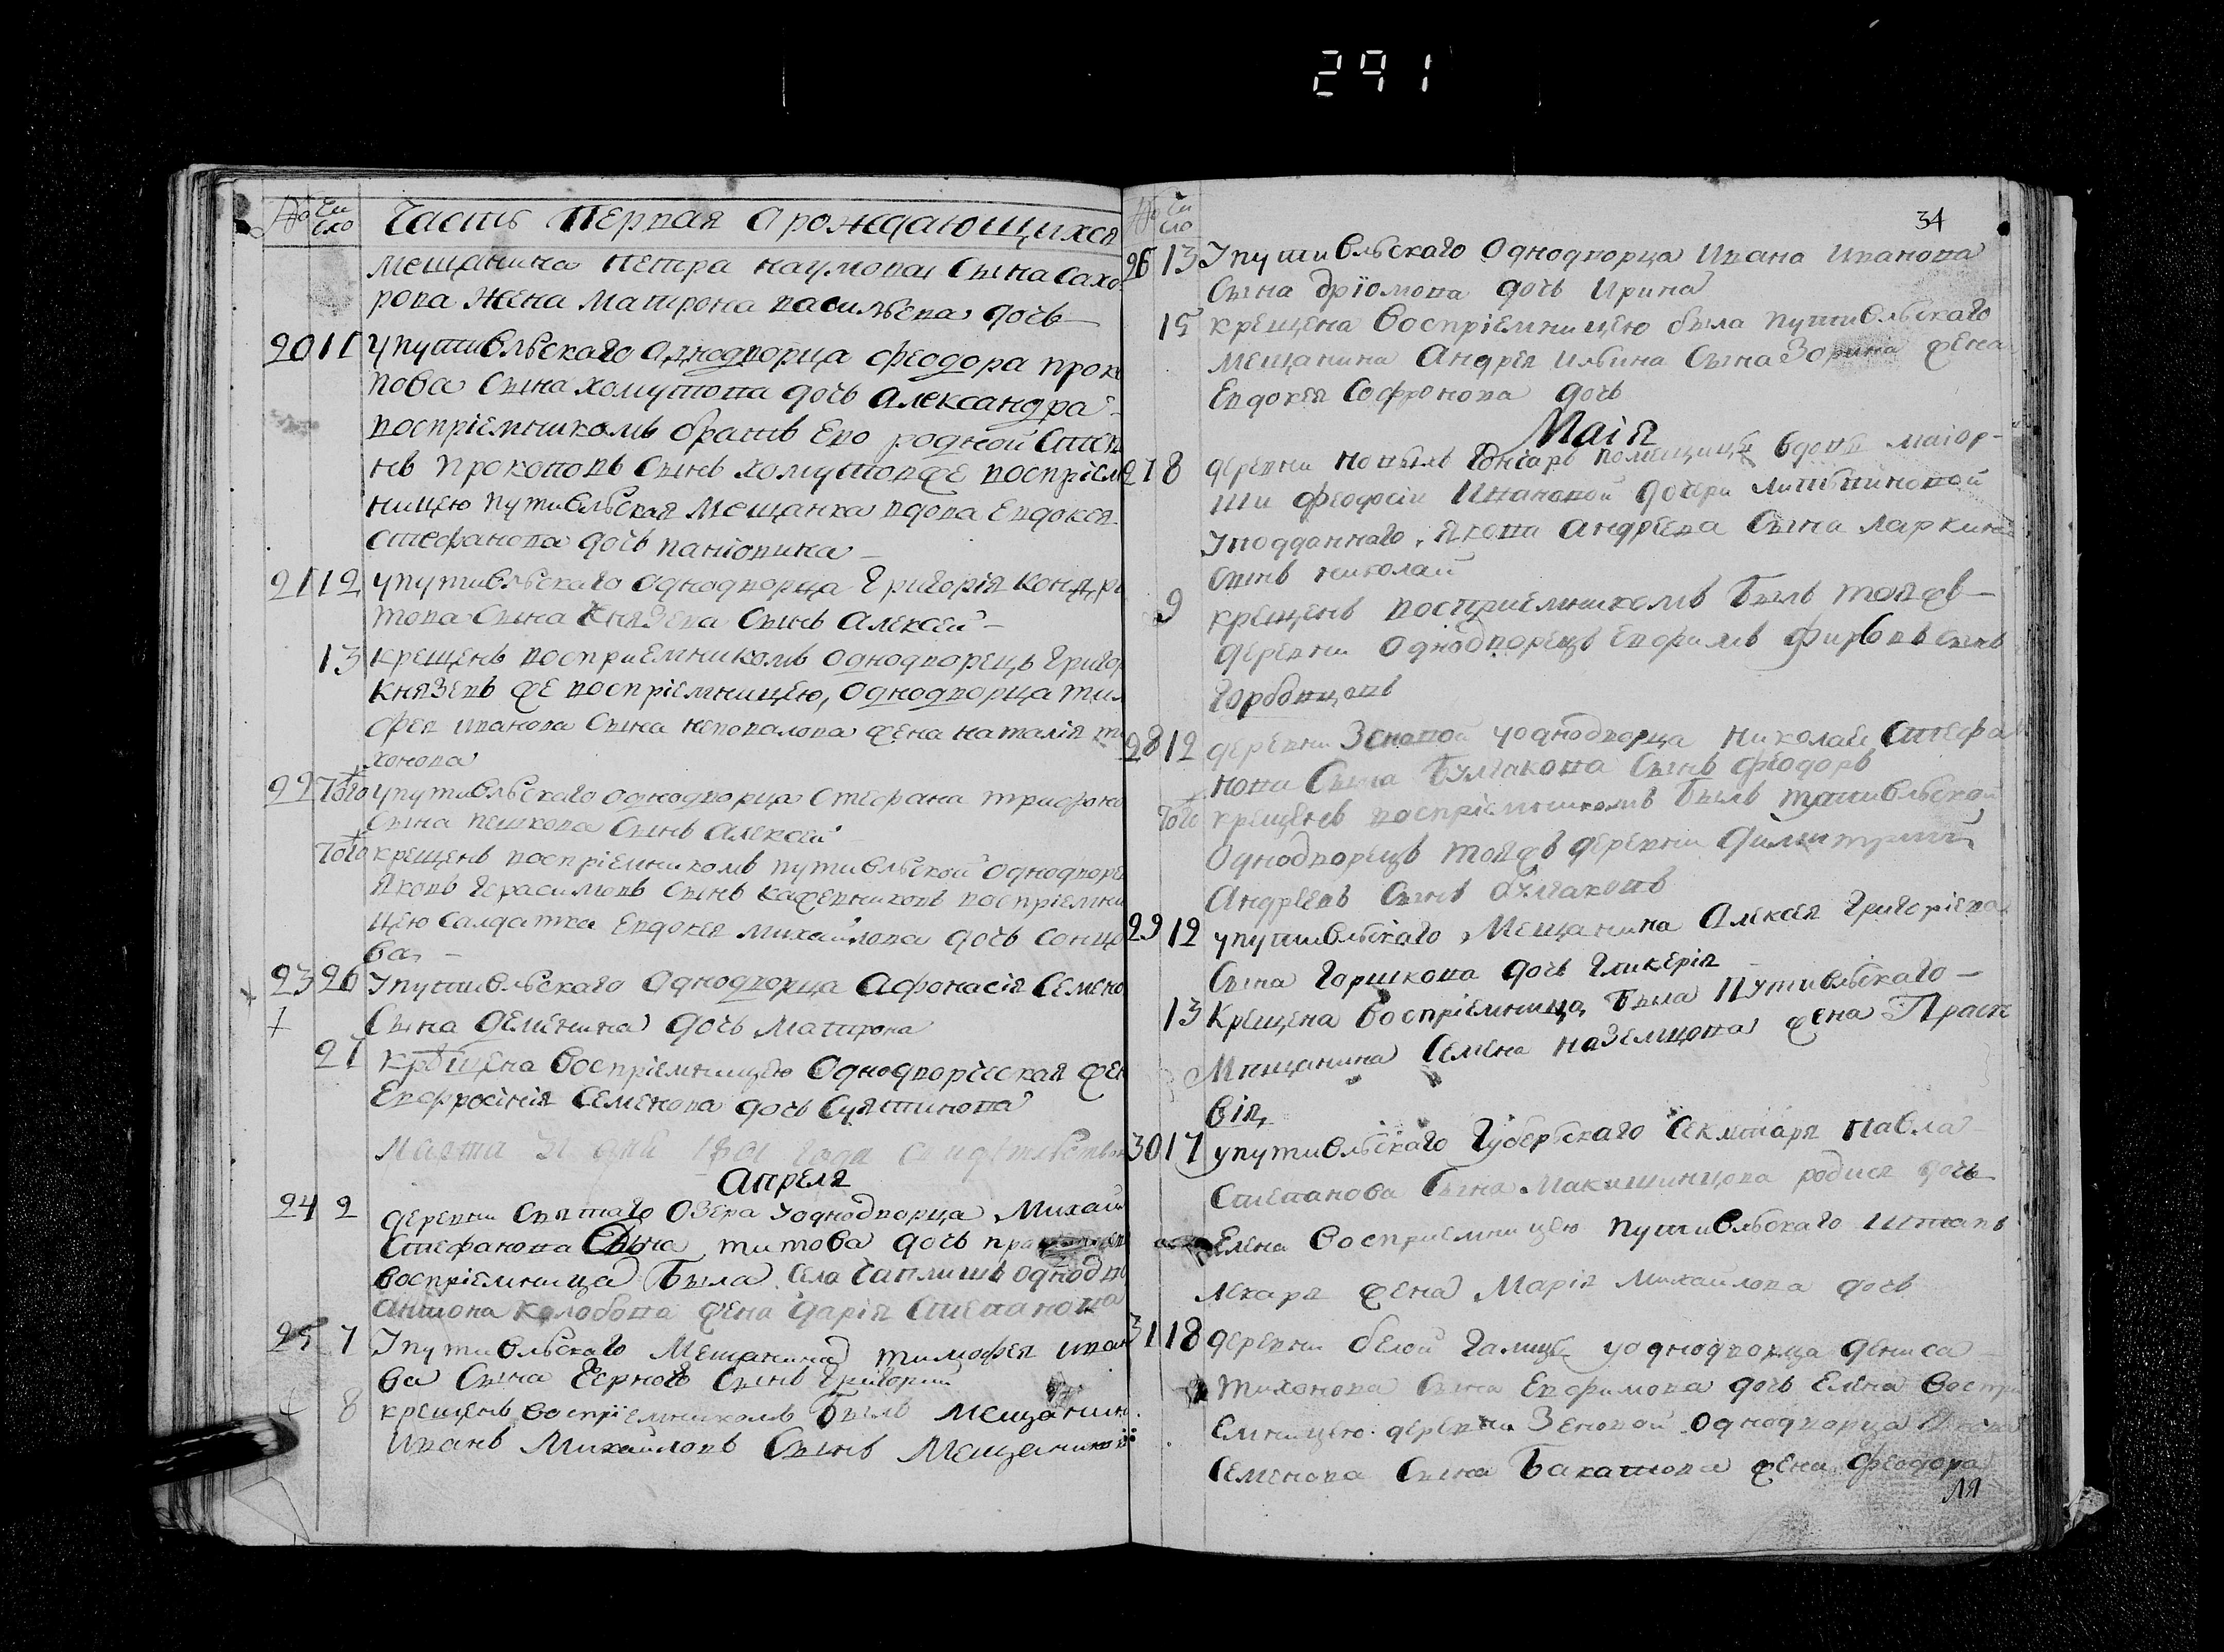 291
№ Чи сло
Часть Первая О рождающихся
мещанина Петра наумова Сына Сахо
рова Жена Матрона васильева дочь
20 11 упутивльскаго Однодворца феодора прок
пова Сына хомутова дочь александра
воспріемникомъ братъ Его родной Степ
нъ Прокоповъ Сынъ хомутовже воспріем
ницею путивльская мещанка вдова Евдокея
стефанова дочь паніовина
21 12 упутивльскаго однодворца григорія кондра
това Сына Князева Сынъ Алексей
13 крещенъ восприемникомъ однодворецъ григор
князевъ же воспріемницею, однодворца тим
фея иванова Сына неповалова жена наталія ти
хонова
22 Того упутивльскаго однодворца Стефана трифоно
Сына пешкова Сынъ Алексей
Того крещенъ воспріемникомъ путивльской однодворе
яковъ герасимовъ Сынъ кажевниковъ воспріемни
цею салдатка Евдокея михайлова дочь сонцо
ва
23 26 Упутивльскаго Однодворца Афонасія Семено
Сына деменина дочь матрона
27 крещена воспріемницею Однодворческая жен
Евфросінія Семенова дочь Сужтинова
Марта 31 дня 1801 года Свидетельствов
Апреля
24 2 деревни Святаго Озера уоднодворца Михай
Стефанова Сына титова дочь
воспріемница была Села Чаплищъ однодв
антона колобова жена дарія Степанова
25 7 Упутивльскаго Мещанина тимофея иван
ва Сына Черного Сынъ Григорий
8 крещенъ воспріемникомъ былъ мещанин
Иванъ Михайловъ Сынъ Мещаниновъ
№ Чи сло
34
26 13 Упутивльскаго Однодворца Ивана Иванова
Сына Ѳріомова дочь Ирина
15 крещена воспріемницею была путивльскаго
мещанина Андрея ильина Сына Зорина жена
Евдокея Софронова дочь
Маія
27 8 деревни помещицы вдовы маіор-
ши феодосіи Ивановой дочери литвиновой
уподданнаго якова андреева Сына ларкина
Сынъ николай
9 крещенъ восприемникомъ былъ тояжъ
деревни Однодворецъ Ефимъ фирсовъ Сынъ
горбовцовъ
28 12 деревни Зеновой уоднодворца николая Стефа
нова Сына Булгакова Сынъ феодоръ
Того крещенъ воспріемникомъ былъ путивльской
Однодворецъ тояжъ деревни Димитрий
Андреевъ Сынъ булгаковъ
29 12 упутивльскаго Мещанина Алексея григоріева
Сына горшкова дочь гликерія
13 Крещена воспріемница была Путивльскаго
Мищанина Семена наземцова жена Праск
вія
30 17 упутивльскаго губерскаго Секлтаря павла
Степанова Сына Макишинцова родися дочь
Елена восприемницею путивльскаго штапъ
лекаря жена Марія михайлова дочь
31 18 деревни белой галицы уоднодворца дениса
тихонова Сына Евфимова дочь Елена воспри
емницею деревни Зеновой однодворца
Семенова Сына Бакатова жена феодора
ля